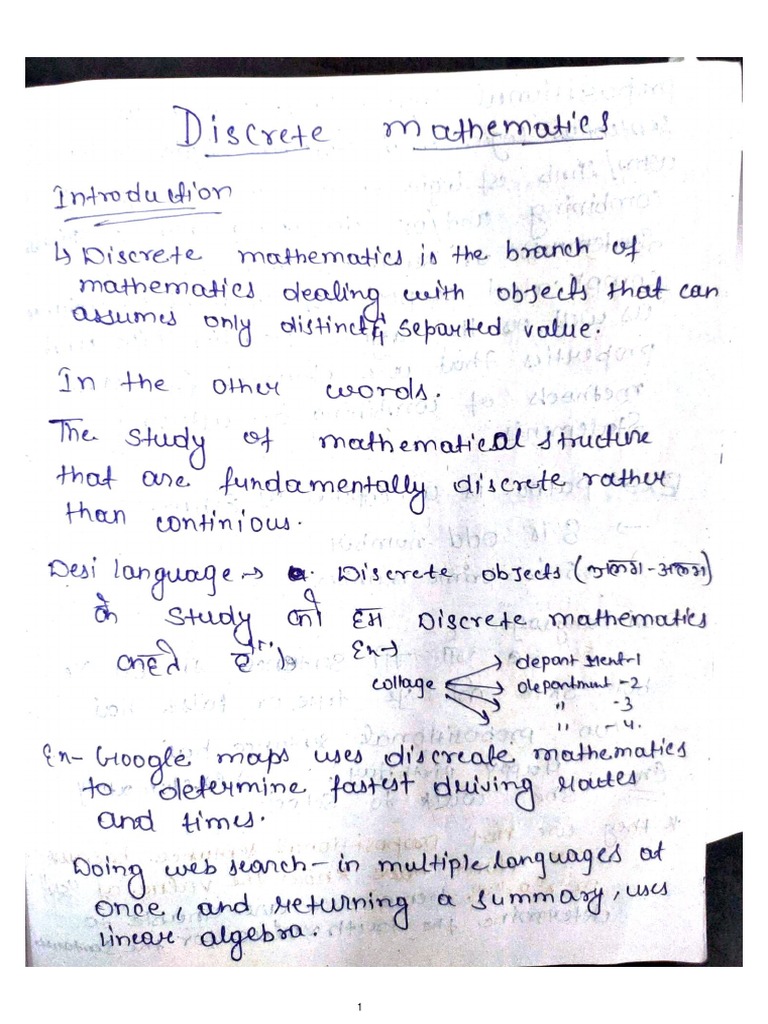 Discrete mathematics
Introduction
↳ Discrete mathematics is the branch of
mathematics dealing with objects that can
assumes only distinct & separted value.
In the other words.
The study of mathematical structure
that are fundamentally discrete rather
than continious.
Desi language → Discrete objects (अलग-अलग)
के study को हम Discrete mathematics
कहते हैं। Ex→
collage department-1
department-2
" -3
" -4.
Ex- Google maps uses discreate mathematics
to determine fastest driving routes
and times.
Doing web search - in multiple languages at
once, and returning a summary, uses
linear algebra.
1